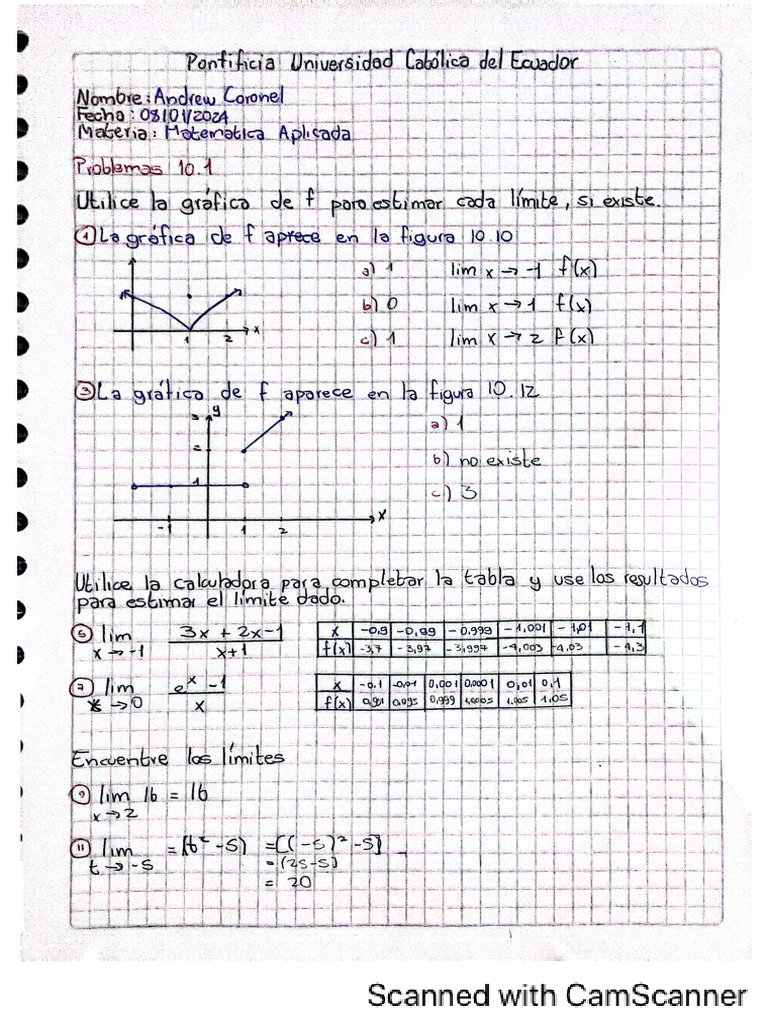 Pontificia Universidad Católica del Ecuador
Nombre: Andrew Coronel
Fecha: 08/01/2024
Materia: Matematica Aplicada
Problemas 10.1
Utilice la gráfica de f para estimar cada límite, si existe.
① La gráfica de f aprece en la figura 10.10
a) 1 lim x → -1 f(x)
b) 0 lim x → 1 f(x)
c) 1 lim x → 2 f(x)
1 2 x
③ La gráfica de f aparece en la figura 10.12
3 y
2
1
-1 1 2 x
a) 1
b) no existe
c) 3
Utilice la calculadora para completar la tabla y use los resultados
para estimar el límite dado.
⑤ lim x → -1 3x + 2x - 1 / x + 1
x -0,9 -0,99 -0,999 -1,001 -1,01 -1,1
f(x) -3,7 -3,97 -3,997 -4,003 -4,03 -4,3
⑦ lim x → 0 e^x - 1 / x
x -0,1 -0,01 0,001 0,0001 0,01 0,1
f(x) 0,999 1,0005 1,005 1,05
Encuentre los límites
⑨ lim 16 = 16
x → 2
⑪ lim = (t² - 5) = [(-5)² - 5]
t → -5 = (25 - 5)
= 20
Scanned with CamScanner